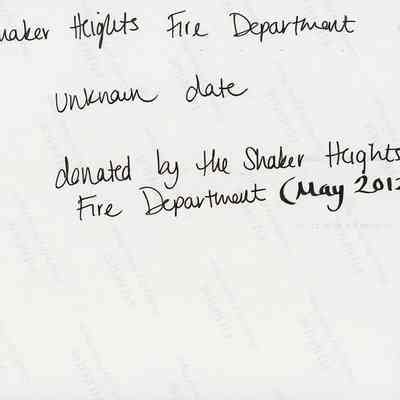 haker Heights Fire Department
unknown date
donated by the Shaker Heights
Fire Department (May 2012